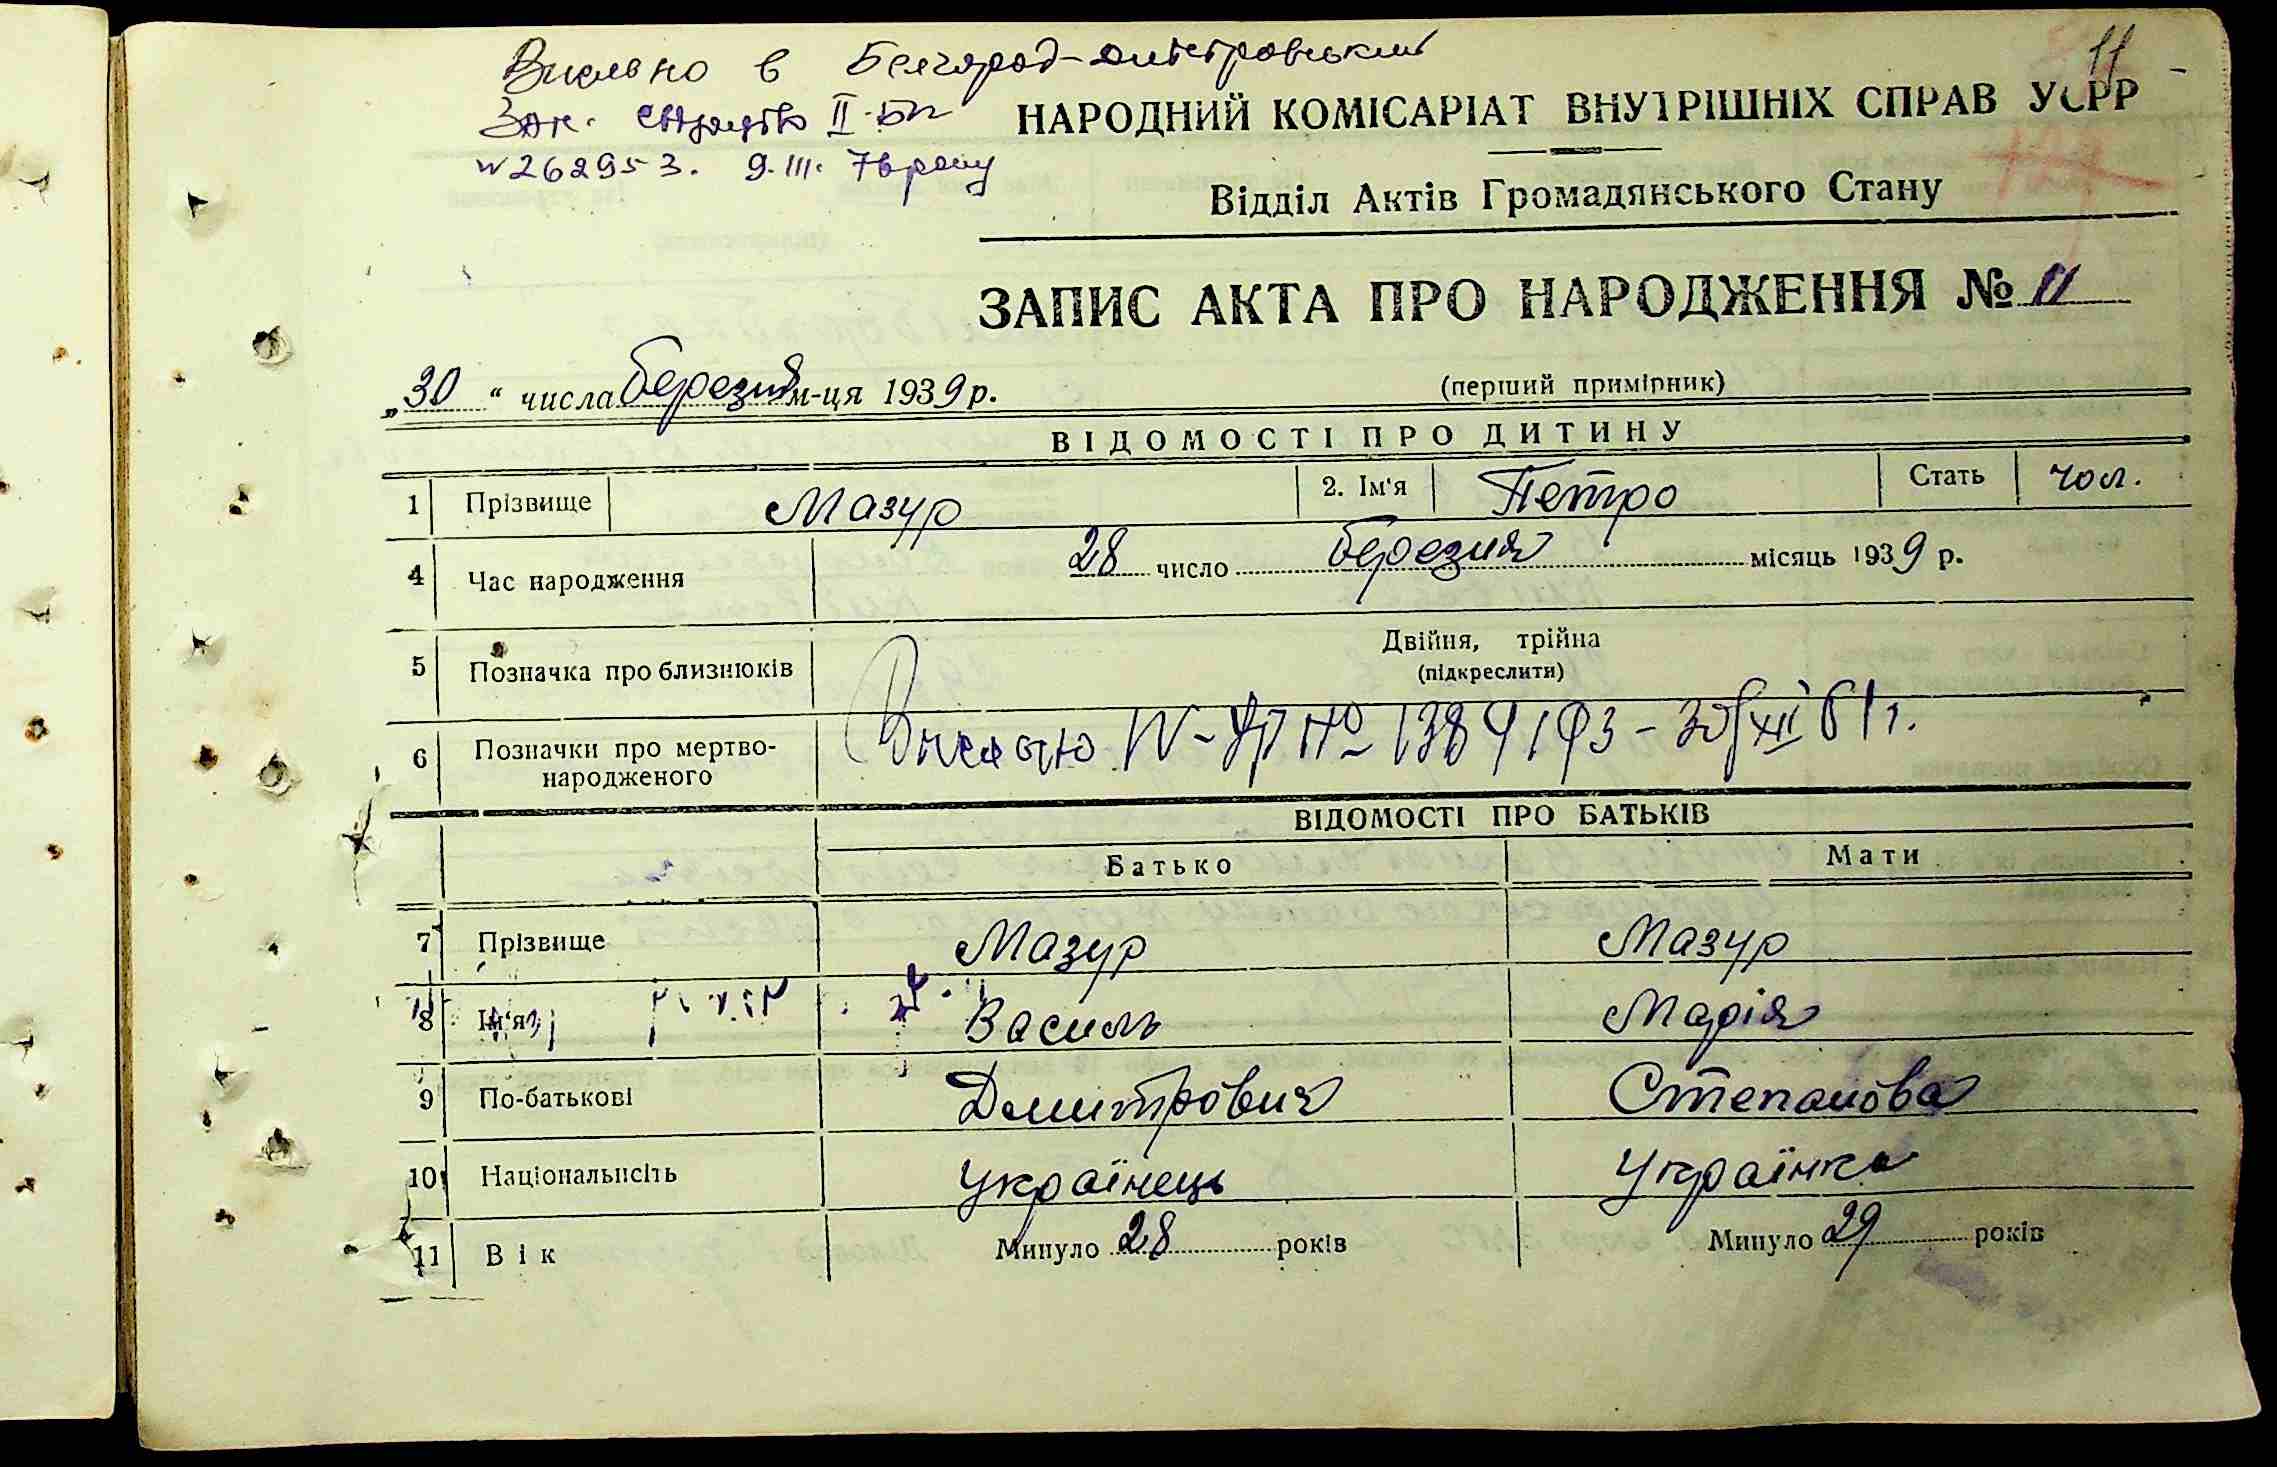 в Белгород-Днестровський
11
НАРОДНИЙ КОМІСАРІАТ ВНУТРІШНІХ СПРАВ УСРР
II-БП
N 262953. 9. III.
Відділ Актів Громадянського Стану
ЗАПИС АКТА ПРО НАРОДЖЕННЯ № 11
„30“ числа березня м-ця 1939 р.
(перший примірник)
ВІДОМОСТІ ПРО ДИТИНУ
1 Прізвище Мазур 2. Ім'я Петро Стать чол.
4 Час народження 28 число березня місяць 1939 р.
5 Позначка про близнюків Двійня, трійна
(підкреслити)
6 Позначки про мертво-
народженого
ВІДОМОСТІ ПРО БАТЬКІВ
Батько Мати
7 Прізвище Мазур Мазур
8 Ім'я Василь Марія
9 По-батькові Дмитрович Степанова
10 Національність Українець Українка
11 Вік Минуло 28 років Минуло 29 років